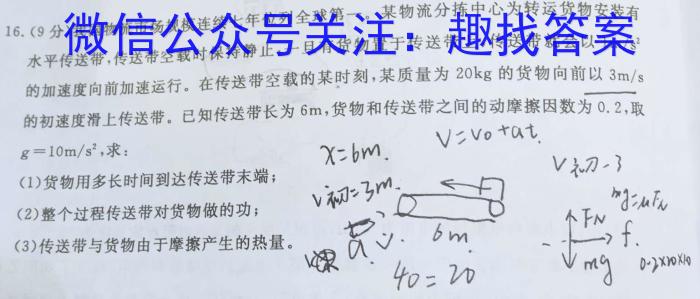 16.(9分
市场规模连续七年位列全球第一
某物流分拣中心为转运货物安装有
微信公众号关注：趣找答案
水平传送带,传送带空载时保持静止
的加速度向前加速运行。在传送带空载的某时刻,某质量为20kg的货物向前以3m/s
的初速度滑上传送带。已知传送带长为6m,货物和传送带之间的动摩擦因数为0.2,取
g=10m/s²,求:
(1)货物用多长时间到达传送带末端;
(2)整个过程传送带对货物做的功;
(3)传送带与货物由于摩擦产生的热量。
V=V₀+at.
x=6m.
V初=3m.
6m
40=20
V初=3
mg=μFN
FN
f.
mg
0.2×20×10